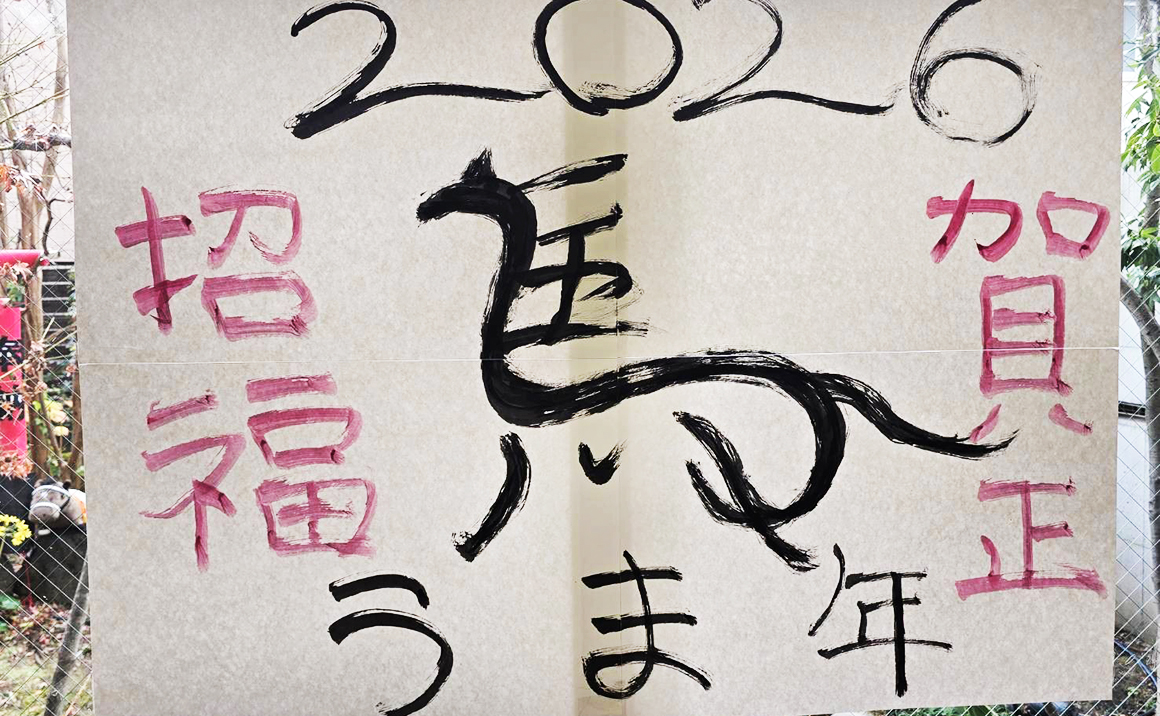 2026
賀正
馬
招福
うま年